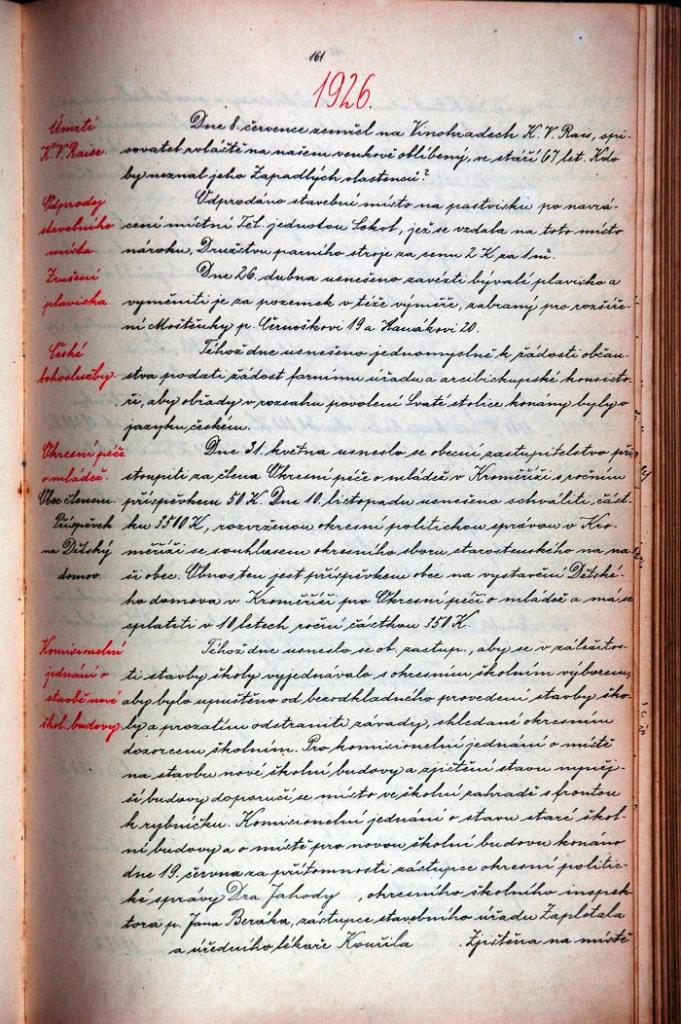 161
1926.
Úmrtí
K. V. Raise.
Dne 8. července zemřel na Vinohradech K. V. Rais, spi-
sovatel zvláště na našem venkově oblíbený, ve stáří 67 let. Kdo
by neznal jeho Zapadlých vlastenců?
Odprodej
stavebního
místa.
Odprodáno stavební místo na pastvisku po navrá-
cení místní Těl. jednotou Sokol, jež se vzdala na toto místo
nároku, Družstvu parního stroje za cenu 2 K za 1 m².
Zrušení
plaviska.
Dne 26. dubna usneseno zavézti bývalé plavisko a
vyměniti je za pozemek v téže výměře, zabraný pro rozšíře-
ní Moštěnky p. Černoškovi 19 a Hanákovi 20.
České
bohoslužby.
Téhož dne usneseno jednomyslně k žádosti občan-
stva podati žádost farnímu úřadu a arcibiskupské konsisto-
ři, aby obřady v rozsahu povolení Svaté stolice konány byly v
jazyku českém.
Okresní péče
o mládež.
Obec členem.
Příspěvek
na Dětský
domov.
Dne 31. května usneslo se obecní zastupitelstvo při-
stoupiti za člena Okresní péče o mládež v Kroměříži s ročním
příspěvkem 50 K. Dne 10. listopadu usneseno schváliti část-
ku 3510 K, rozvrženou okresní politickou správou v Kro-
měříži se souhlasem okresního sboru starostenského na na-
ši obec. Obnos ten jest příspěvkem obce na vystavění Dětské-
ho domova v Kroměříži pro Okresní péči o mládež a má se
splatiti v 10 letech roční částkou 351 K.
Komisionelní
jednání o
stavbě nové
škol. budovy.
Téhož dne usneslo se ob. zastup., aby se v záležitos-
ti stavby školy vyjednávalo s okresním školním výborem,
aby bylo upuštěno od bezodkladného provedení stavby ško-
ly a prozatím odstraniti závady, shledané okresním
dozorcem školním. Pro komisionelní jednání o místě
na stavbu nové školní budovy a zjištění stavu nyněj-
ší budovy doporučí se místo ve školní zahradě s frontou
k rybníčku. Komisionelní jednání o stavu staré škol-
ní budovy a o místě pro novou školní budovu konáno
dne 19. června za přítomnosti zástupce okresní politic-
ké správy Dra Jahody , okresního školního inspek-
tora p. Jana Beráka, zástupce stavebního úřadu Zapletala
a úředního lékaře Kouřila . Zjištěna na místě